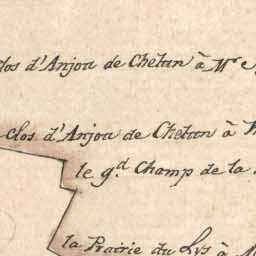 Clos d'Anjou de Chetan à Mr
Clos d'Anjou de Chetan à
le gd Champ de la
la Prairie du Lys à